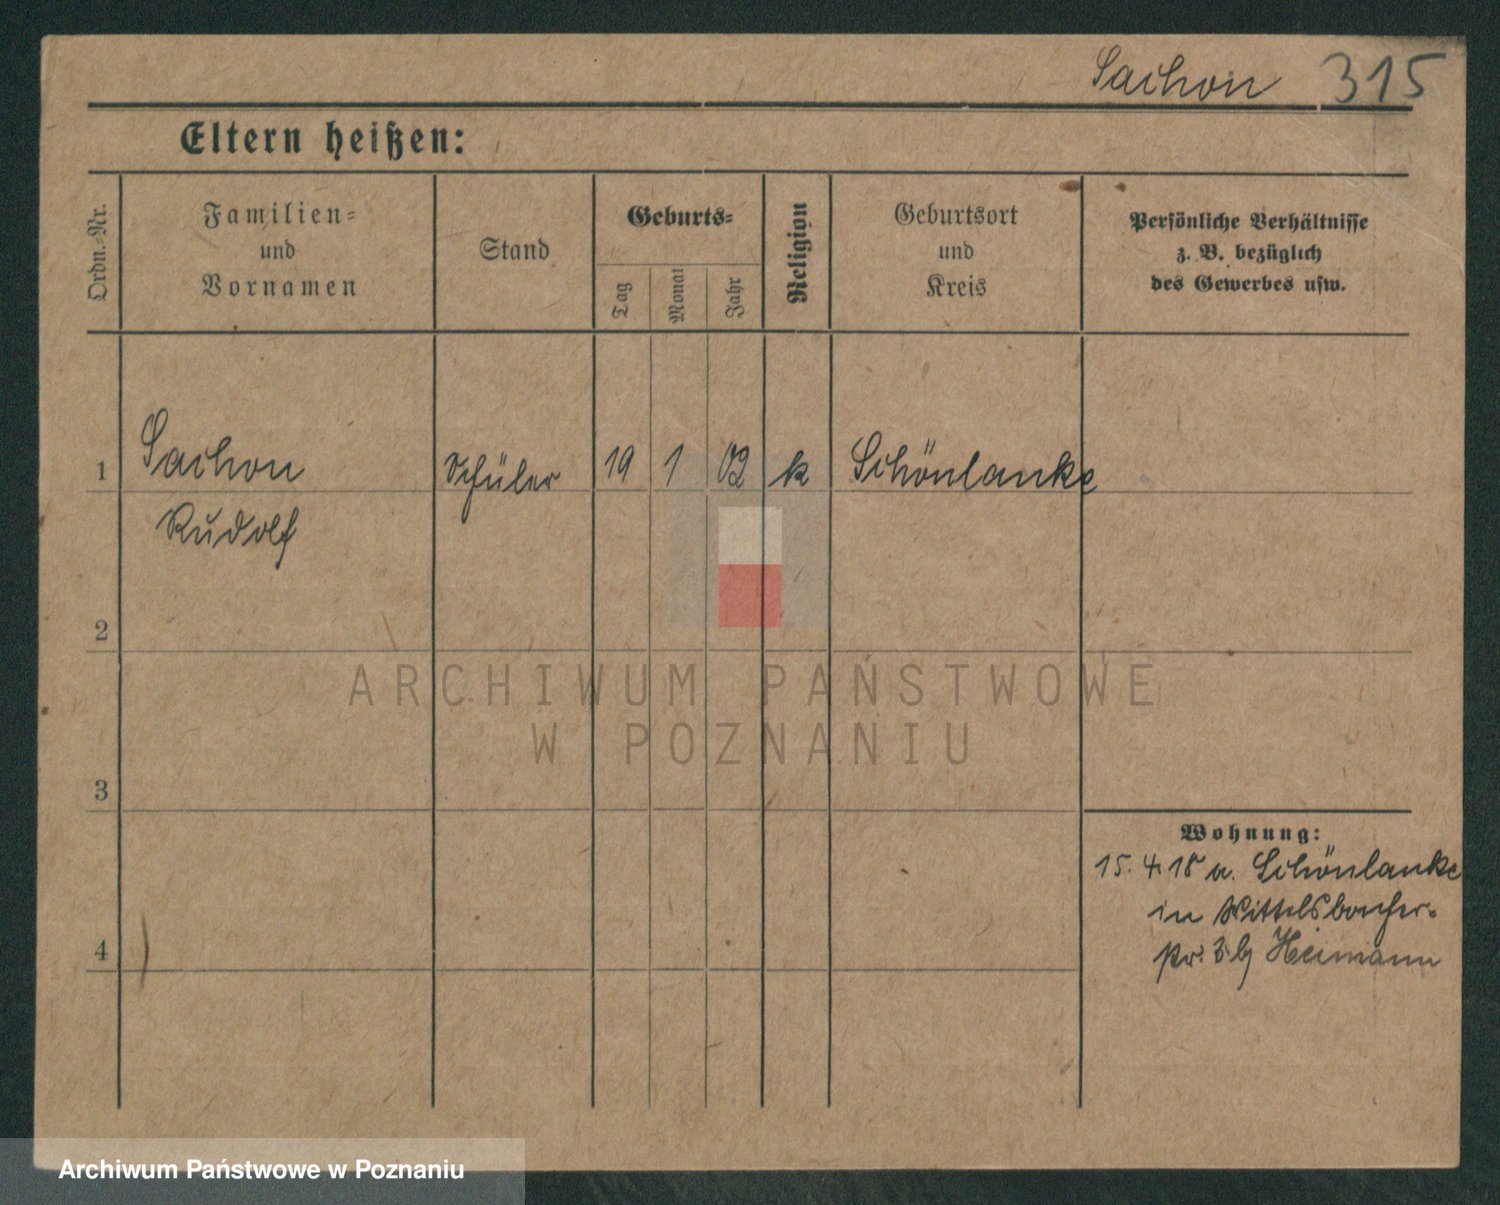 Sachon 315
Eltern heißen:
Ordn.-Nr.
Familien-
und
Vornamen
Stand
Geburts-
Tag
Monat
Jahr
Religion
Geburtsort
und
Kreis
Persönliche Verhältnisse
z. B. bezüglich
des Gewerbes usw.
1 Sachon Schüler 19 1 02 k Schönlanke
Rudolf
2
ARCHIWUM PAŃSTWOWE
W POZNANIU
3
Wohnung:
15. 4. 18 v. Schönlanke
in Wittelsbacher-
4
Heimann
Archiwum Państwowe w Poznaniu